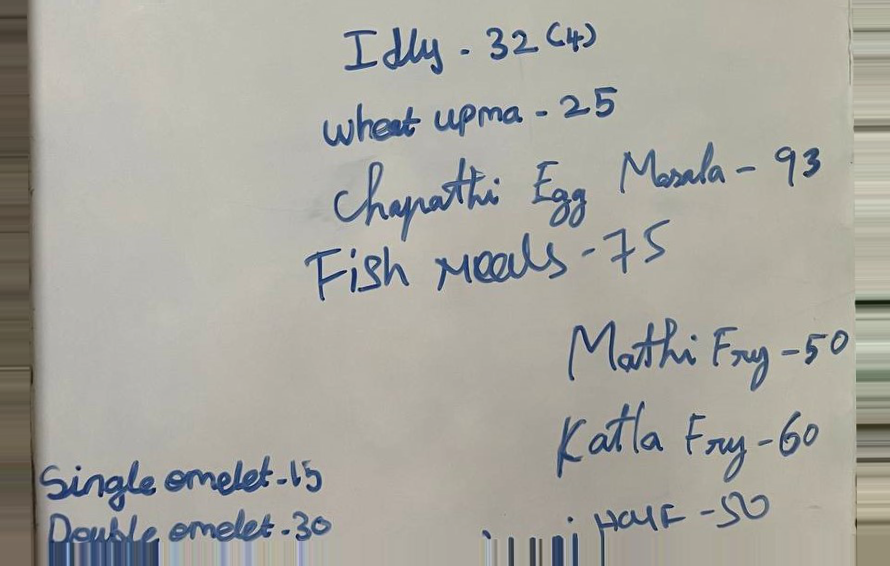 Idly - 32 (4)
wheat upma - 25
Chapathi Egg Masala - 93
Fish meals - 75
Mathi Fry - 50
Katla Fry - 60
Single omelet - 15
Double omelet - 30
Half - 50